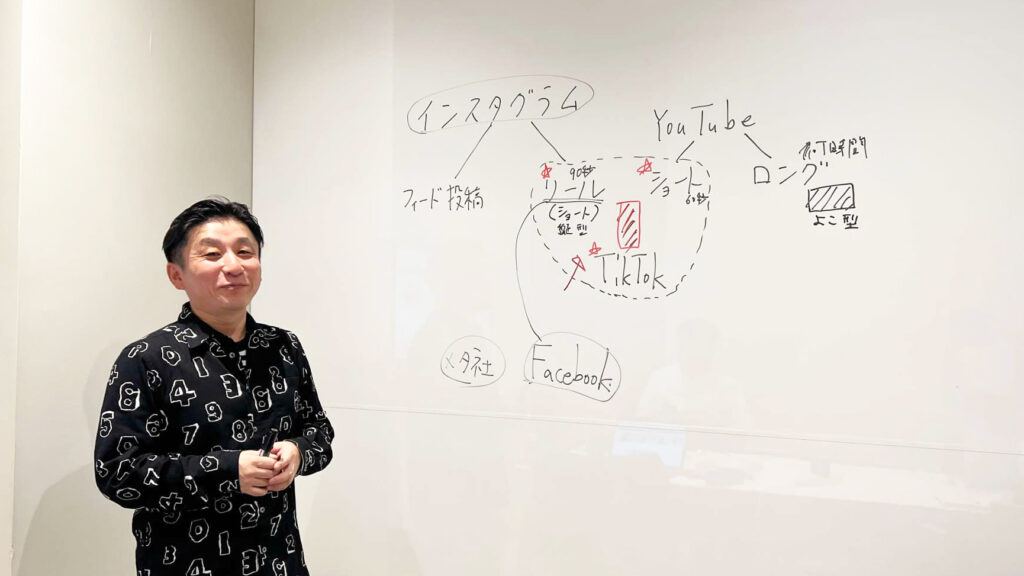 インスタグラム
フィード投稿
90秒
リール
(ショート)
縦型
YouTube
ショート
60秒
TikTok
ロング
よこ型
メタ社
Facebook